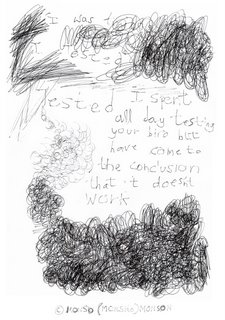 I was t
I
Tested I spent
all day testing
your biro but
have come to
the conclusion
that it doesnt
work
© MONSON